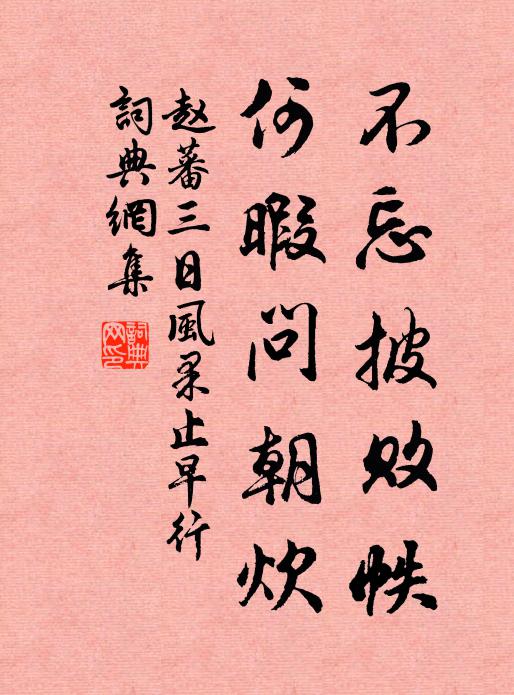 不忘披败帙
何暇問朝炊
赵蕃三日風果止早行
詞典網集
詞典网印